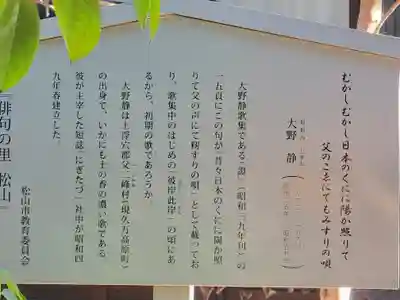 むかしむかし日本のくにに陽か照りて
父のこゑにてもみすりの唄
大野 静
大野静歌集である「澪」（昭和三九年刊）の
一五頁にこの句が「昔々日本のくにに陽か照
りて父の声にて籾すりの唄」として載ってお
り、歌集中のはじめの「彼岸此岸」の頃にあ
るから、初期の歌であろうか
大野静は上浮穴郡父二峰村（現久万高原町）
の出身で、いかにも土の香の濃い歌である
彼が主宰した短誌「にぎたづ」社中が昭和四
九年春建立した。
松山市教育委員会
『俳句の里 松山』